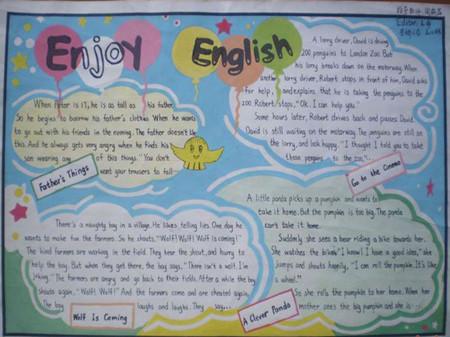 Enjoy English
When Peter is 17, he is as tall as his father.
So he begins to borrow his father's clothes When he wants
to go out with his friends in the evening. The father doesn't like
this. And he always gets very angry when he finds his
son wearing any of this things. "You don't
want your trousers to fall
Father's Things
A lorry driver, David is driving
200 penguins to London Zoo. But
his lorry breaks down on the motorway. When
another lorry driver, Robert stops in front of him, David asks
for help, and explains that he is taking the penguins to the
zoo. Robert stops, "Ok. I can help you."
Some hours later, Robert drives back and passes David.
David is still waiting on the motorway. The penguins are still on
the lorry, and look happy. "I thought I told you to take
those penguins to the zoo."
Go to the Cinema
There's a naughty boy in a village. He likes telling lies. One day he
wants to make fun the farmers. So he shouts, "Wolf! Wolf! Wolf is coming!"
The kind farmers are working in the field. They hear the shout, and hurry to
help the boy. But when they get there, the boy says, "There isn't a wolf. I'm
joking." The farmers are angry and go back to their fields. After a while the boy
shouts again, "Wolf! Wolf!" And the farmers come and are cheated again.
The boy laughs and laughs. They say
Wolf Is Coming
A little panda picks up a pumpkin and wants to
take it home. But the pumpkin is too big. The panda
can't take it home.
Suddenly she sees a bear riding a bike towards her.
She watches the bike. "I know! I have a good idea," she
jumps and shouts happily, "I can roll the pumpkin. It's like
a wheel."
So she rolls the pumpkin to her home. When her
mother sees the big pumpkin and she is
A Clever Panda